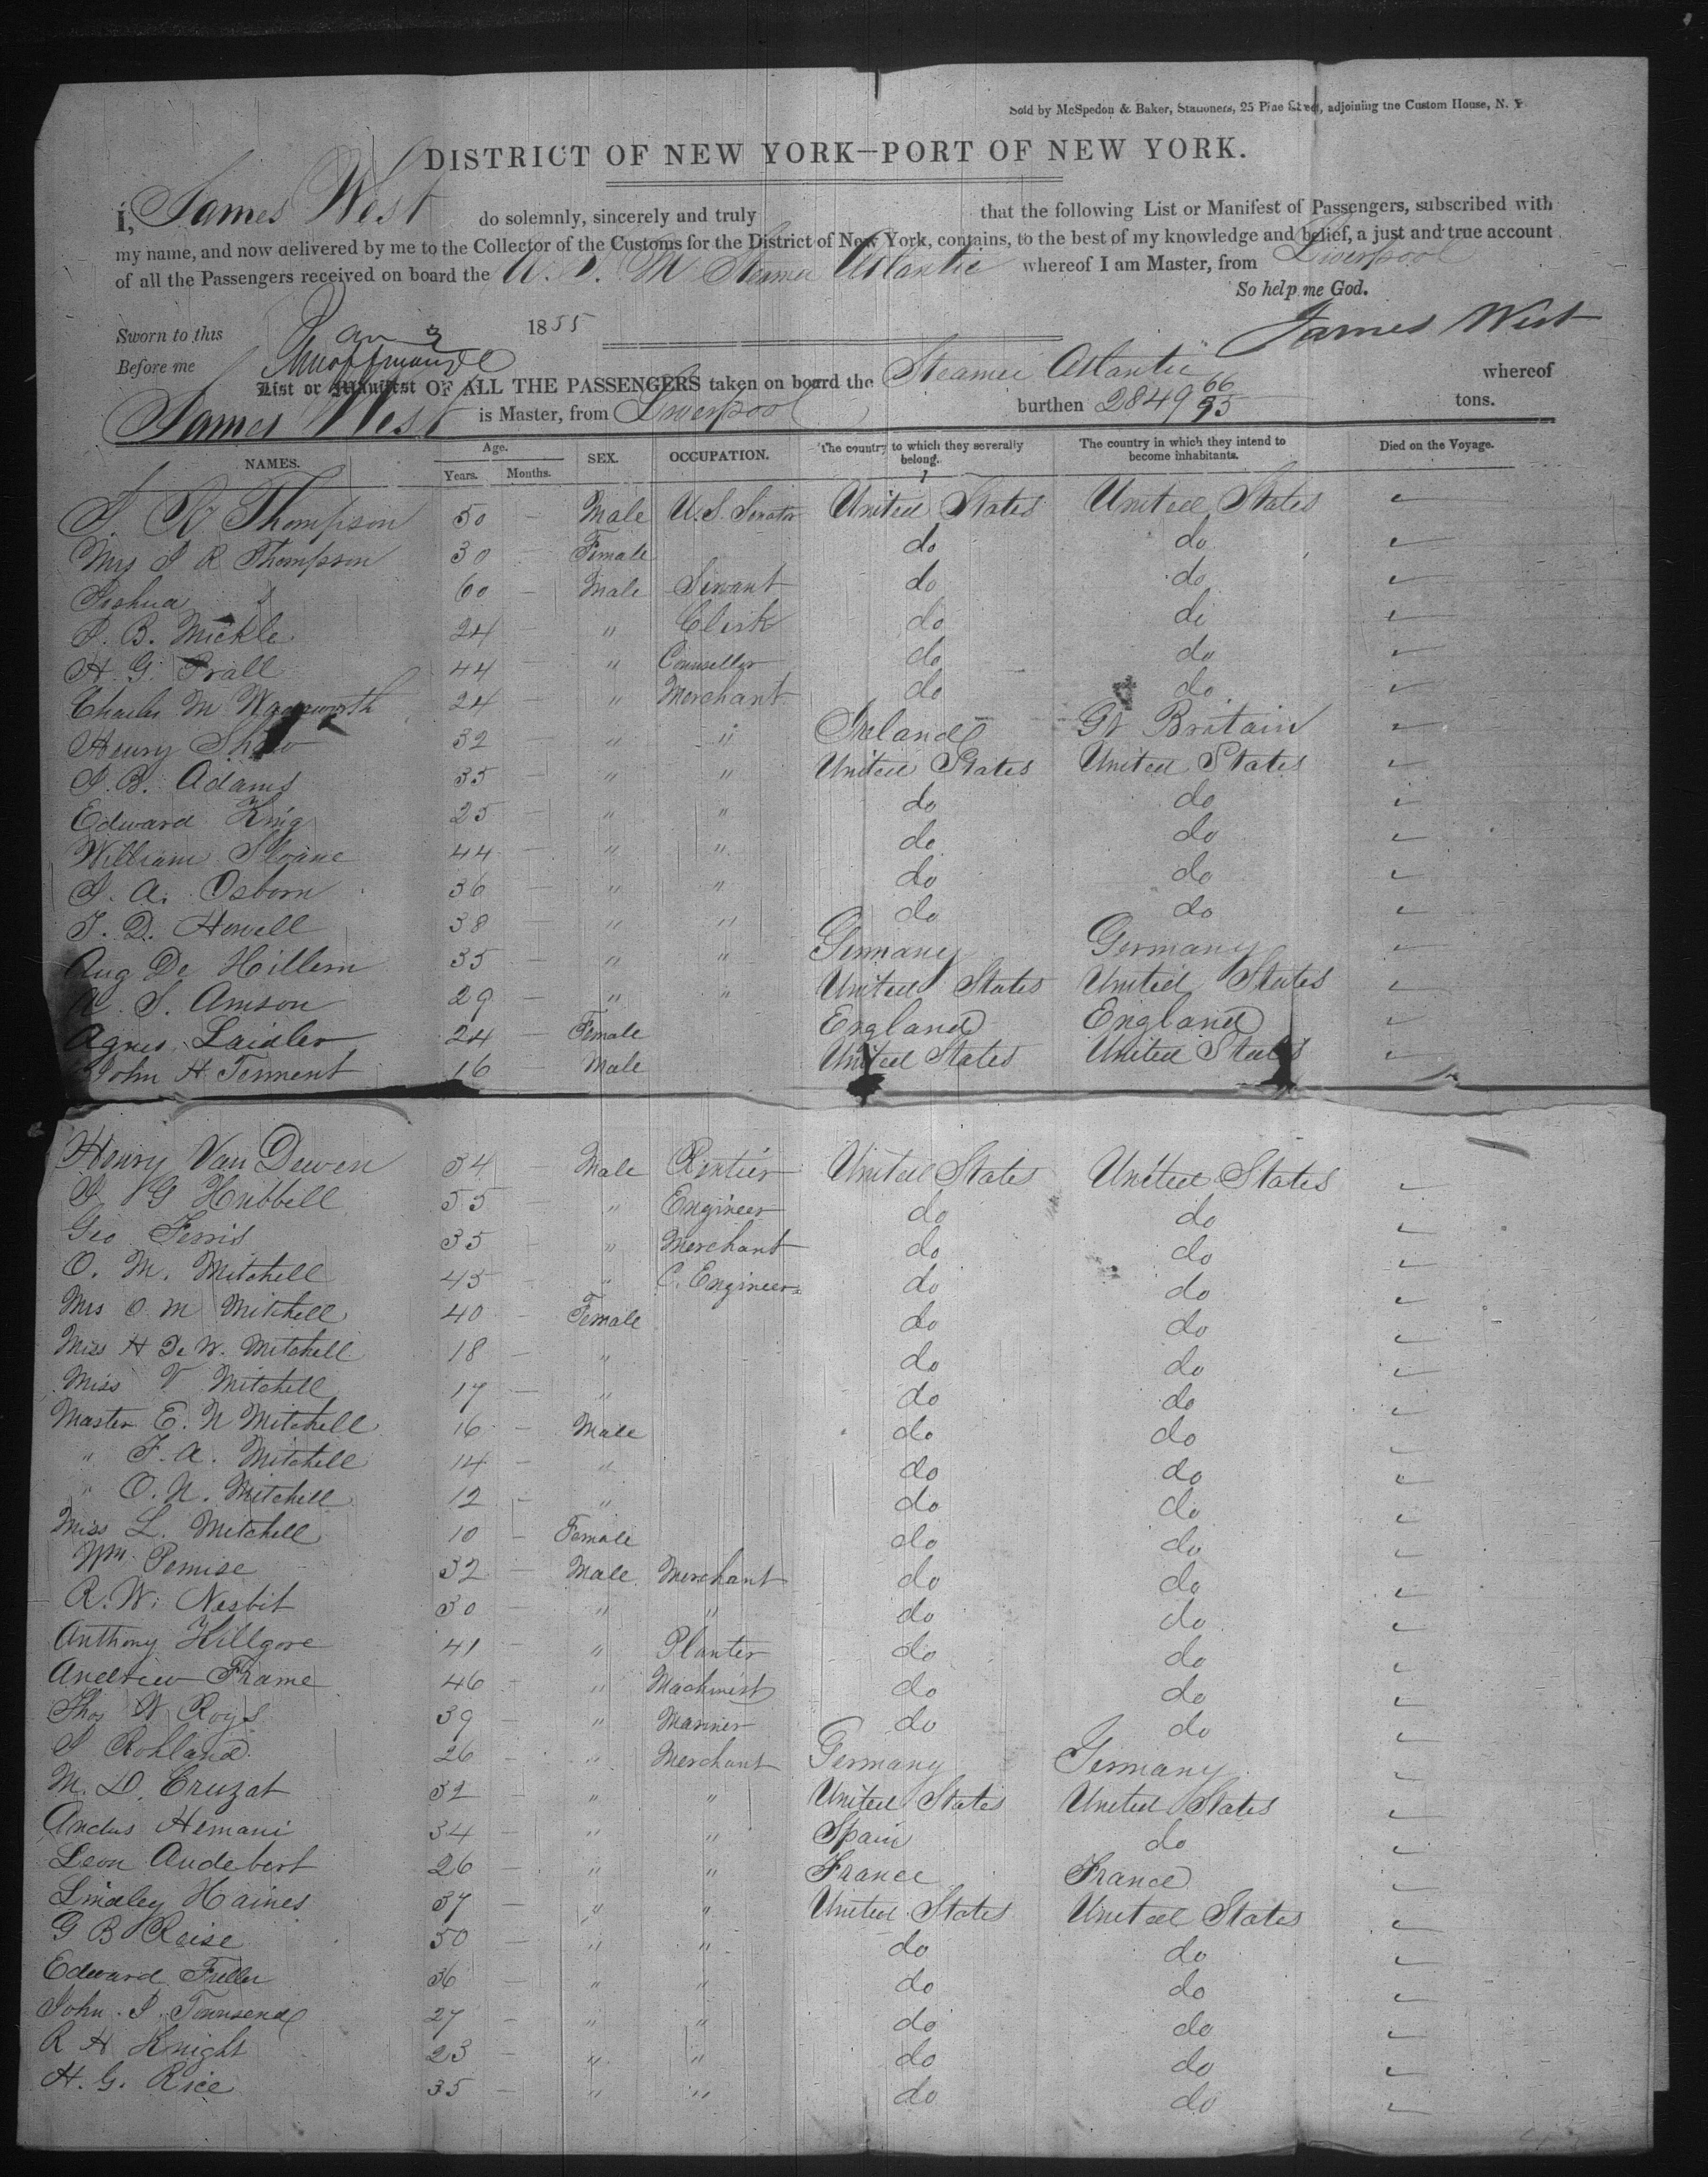 Sold by McSpedon & Baker, Stationers, 25 Pine Street, adjoining the Custom House, N. Y.
DISTRICT OF NEW YORK—PORT OF NEW YORK.
I, James West do solemnly, sincerely and truly that the following List or Manifest of Passengers, subscribed with
my name, and now delivered by me to the Collector of the Customs for the District of New York, contains, to the best of my knowledge and belief, a just and true account
of all the Passengers received on board the U. S. M Steamer Atlantic whereof I am Master, from Liverpool
So help me God.
Sworn to this Jan 3 1855
James West
Before me
List or Manifest OF ALL THE PASSENGERS taken on board the Steamer Atlantic whereof
James West is Master, from Liverpool burthen 2849 66/95 tons.
NAMES. Age. Years. Months. SEX. OCCUPATION. The country to which they severally belong. The country in which they intend to become inhabitants. Died on the Voyage.
J. R Thompson 50 — Male U.S. Senator United States United States
Mrs J R Thompson 30 — Female do do
Joshua 60 — Male Servant do do
J. B. Mickle 24 — " Clerk do do
H. G. Prall 44 — " Counsellor do do
Charles M Wadsworth 24 — " Merchant do do
Henry Shaw 32 — " " Ireland Gt Britain
J. B. Adams 35 — " " United States United States
Edward King 25 — " " do do
William Sloane 44 — " " do do
J. A. Osborn 36 — " " do do
T. D. Howell 38 — " " do do
Aug De Hillern 35 — " " Germany Germany
A. S. Amson 29 — " " United States United States
Agnes Laidler 24 — Female England England
John H Tennent 16 — Male United States United States
Henry Van Dewen 34 — Male Rentier United States United States
J VG Hubbell 55 — " Engineer do do
Geo Ferris 35 — " Merchant do do
O. M. Mitchell 45 — " C. Engineer do do
Mrs O. M Mitchell 40 — Female do do
Miss H De W. Mitchell 18 — " do do
Miss V Mitchell 17 — " do do
Master E. N Mitchell 16 — Male do do
" F. A. Mitchell 14 — " do do
" O. N. Mitchell 12 — " do do
Miss L. Mitchell 10 — Female do do
Wm Pemise 32 — Male Merchant do do
R. W. Nesbit 30 — " " do do
Anthony Killgore 41 — " Planter do do
Andrew Frame 46 — " Machinist do do
Thos W Roys 39 — " Mariner do do
J Rohland 26 — " Merchant Germany Germany
M. D. Cruzat 32 — " " United States United States
Andus Hemani 34 — " " Spain do
Leon Audebert 26 — " " France France
Lindley Haines 37 — " " United States United States
G B Reise 50 — " " do do
Edward Fuller 36 — " " do do
John J. Townsend 27 — " " do do
R H Knight 23 — " " do do
H. G. Rice 35 — " " do do